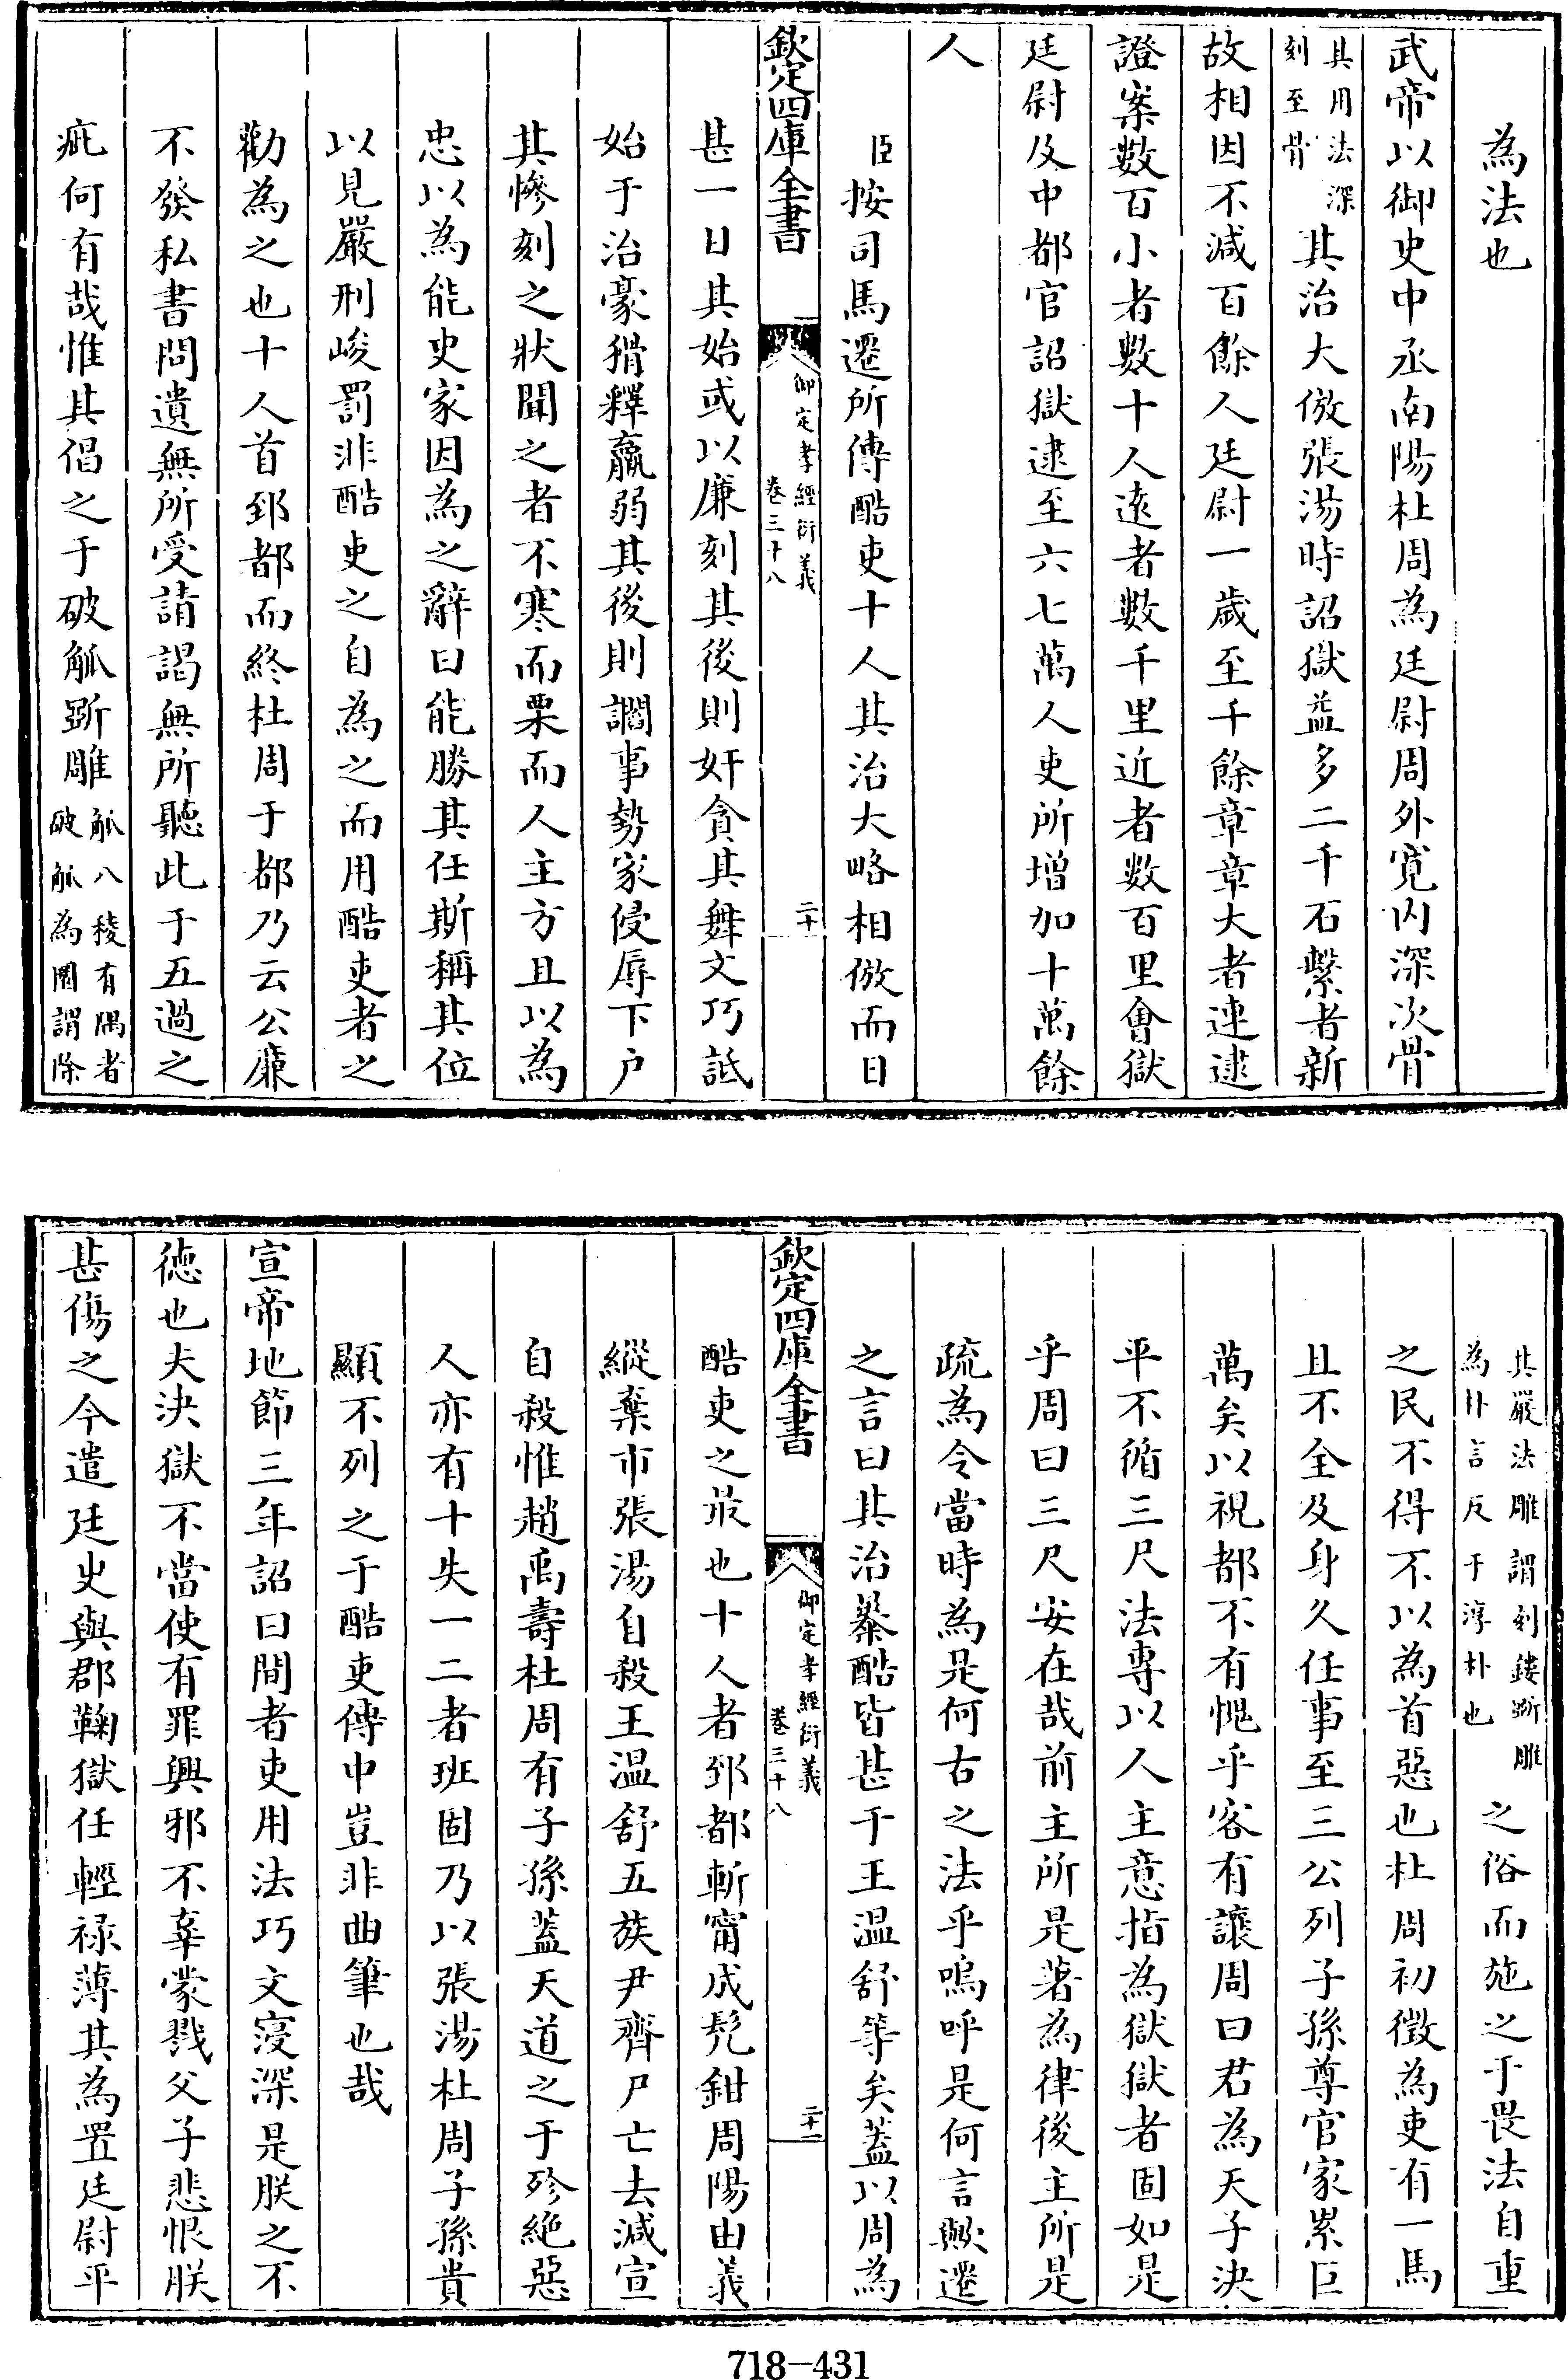 為法也
武帝以御史中丞南陽杜周為廷尉周外寛内深次骨
其用法深刻至骨其治大倣張湯時詔獄益多二千石繫者新
故相因不減百餘人廷尉一歲至千餘章章大者連逮
證案數百小者數十人遠者數千里近者數百里會獄
廷尉及中都官詔獄逮至六七萬人吏所增加十萬餘
人
臣按司馬遷所傳酷吏十人其治大略相倣而日
欽定四庫全書 御定孝經衍義 卷三十八 二十
甚一日其始或以廉刻其後則奸貪其舞文巧詆
始于治豪猾釋羸弱其後則讇事勢家侵辱下户
其慘刻之狀聞之者不寒而栗而人主方且以為
忠以為能史家因為之辭曰能勝其任斯稱其位
以見嚴刑峻罰非酷吏之自為之而用酷吏者之
勸為之也十人首郅都而終杜周于都乃云公廉
不發私書問遺無所受請謁無所聽此于五過之
疵何有哉惟其倡之于破觚斲雕觚八稜有隅者破觚為圜謂除
其嚴法雕謂刻鏤斲雕為朴言反于淳朴也之俗而施之于畏法自重
之民不得不以為首惡也杜周初徵為吏有一馬
且不全及身久任事至三公列子孫尊官家累巨
萬矣以視都不有愧乎客有讓周曰君為天子決
平不循三尺法專以人主意指為獄獄者固如是
乎周曰三尺安在哉前主所是著為律後主所是
疏為令當時為是何古之法乎嗚呼是何言歟遷
之言曰其治暴酷皆甚于王温舒等矣蓋以周為
欽定四庫全書 御定孝經衍義 卷三十八 二十一
酷吏之最也十人者郅都斬甯成髡鉗周陽由義
縱棄市張湯自殺王温舒五族尹齊尸亡去減宣
自殺惟趙禹壽杜周有子孫蓋天道之于殄絶惡
人亦有十失一二者班固乃以張湯杜周子孫貴
顯不列之于酷吏傳中豈非曲筆也哉
宣帝地節三年詔曰間者吏用法巧文寖深是朕之不
徳也夫決獄不當使有罪興邪不辜蒙戮父子悲恨朕
甚傷之今遣廷史與郡鞠獄任輕禄薄其為置廷尉平
718-431